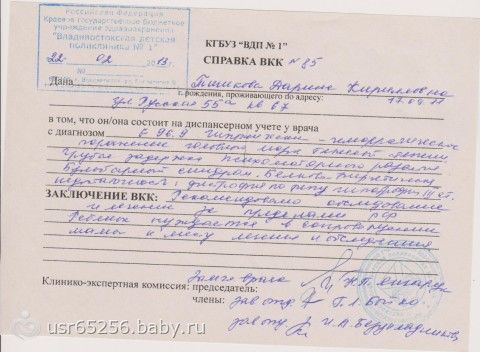 Российская Федерация
Краевое государственное бюджетное
учреждение здравоохранения
"Владивостокская детская
поликлиника № 1"
22 02 2013 г.
№
КГБУЗ "ВДП № 1"
СПРАВКА ВКК № 85
Дана Тишкова Дарина Кирилловна
г.рождения, проживающего по адресу:
ул Русская 55а кв 67
в том, что он/она состоит на диспансерном учете у врача
с диагнозом
поражение головного мозга тяжелой степени
Грубая задержка психомоторного развития
Бульбарный синдром. Белково-энергетическая
недостаточность, дистрофия по типу гипотрофии III ст.
ЗАКЛЮЧЕНИЕ ВКК: Рекомендовано обследование
и лечение за пределами РФ
Ребенок нуждается в сопровождении
мамы к месту лечения и обследования
Клинико-экспертная комиссия: председатель:
члены: зав отд
зав отд
usr65256.baby.ru